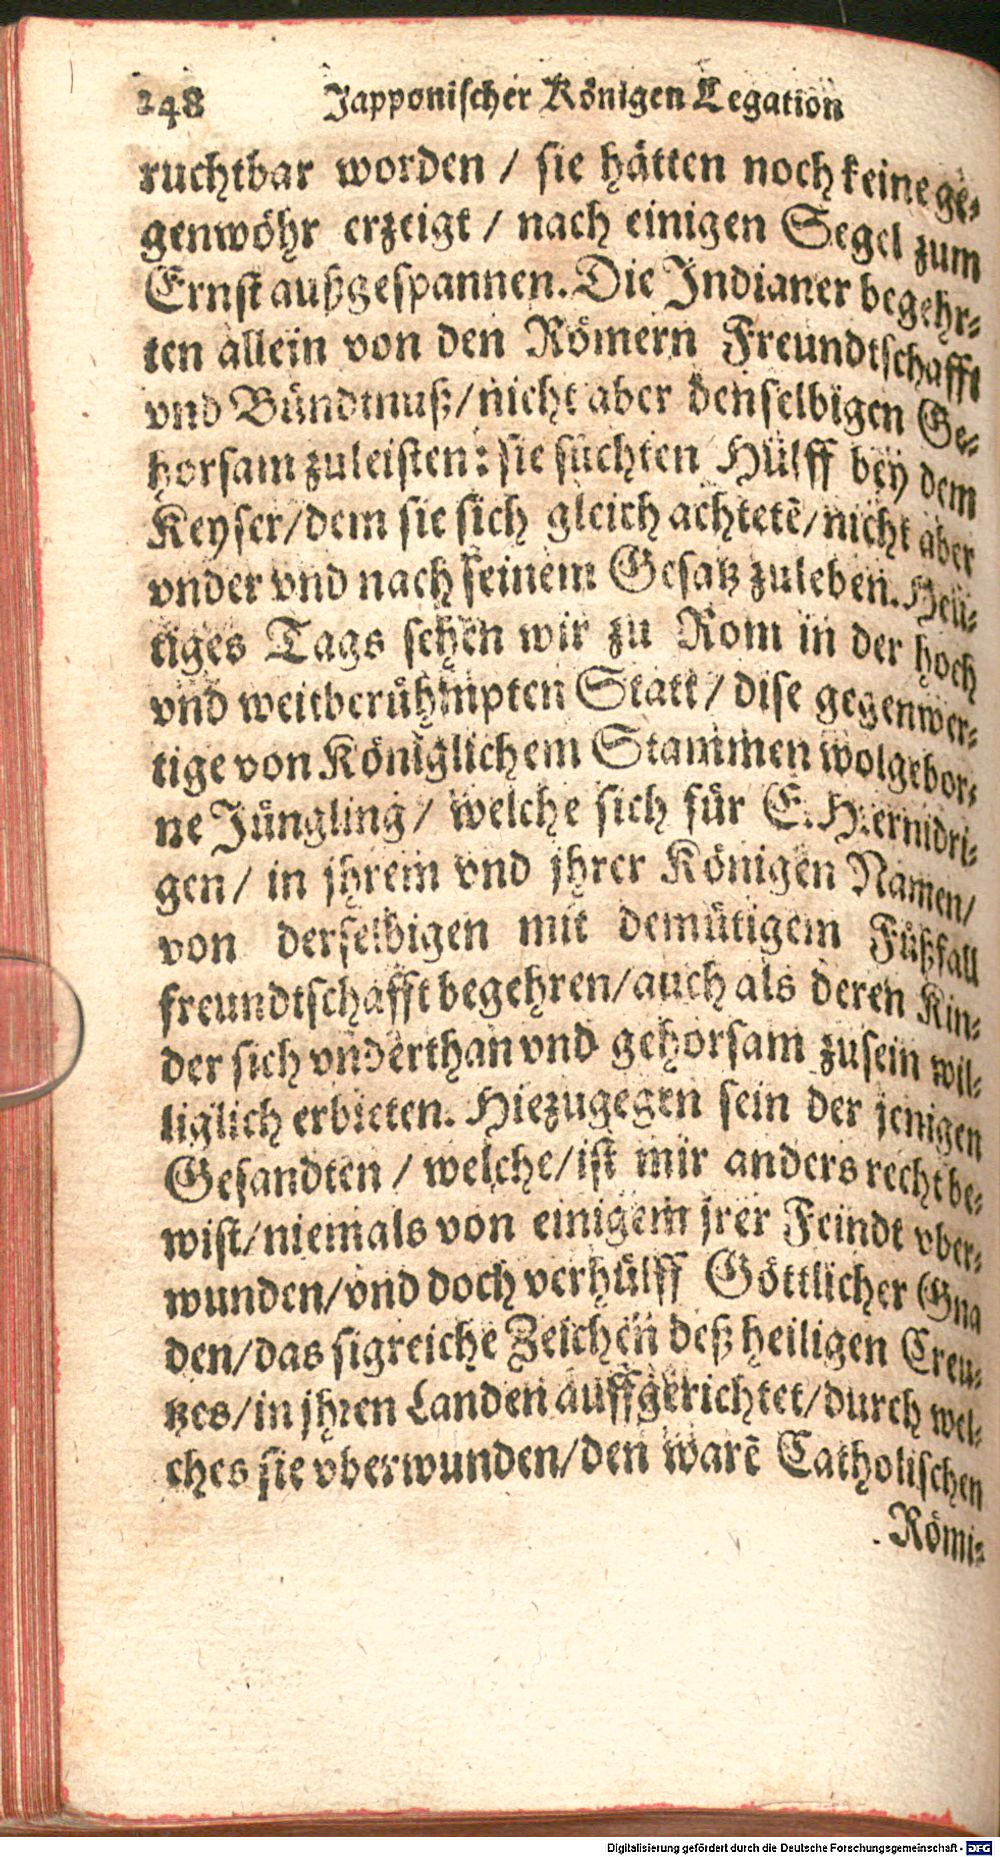 248 Japponischer Königen Legation
ruchtbar worden / sie hätten noch keine ge-
genwöhr erzeigt / nach einigen Segel zum
Ernst außgespannen. Die Indianer begehr-
ten allein von den Römern Freundtschafft
vnd Bündtnuß/ nicht aber denselbigen Ge-
horsam zuleisten: sie suchten Hülff bey dem
Keyser/dem sie sich gleich achtetē/nicht aber
vnder vnd nach seinem Gesatz zuleben. Heü-
tiges Tags sehen wir zu Rom in der hoch
vnd weitberühmpten Statt / dise gegenwer-
tige von Königlichem Stammen wolgebor-
ne Jüngling / welche sich für E. H. ernidri-
gen / in jhrem vnd jhrer Königen Namen/
von derselbigen mit demütigem Fußfall
freundtschafft begehren/auch als deren Kin-
der sich vnderthan vnd gehorsam zusein wil-
liglich erbieten. Hiezugegen sein der jenigen
Gesandten / welche/ist mir anders recht be-
wist/niemals von einigem jrer Feindt vber-
wunden/vnd doch verhülff Göttlicher Gna
den/das sigreiche Zeichen deß heiligen Creu-
tzes/in jhren Landen auffgerichtet/durch wel-
ches sie vberwunden/den warē Catholischen
Römi-
Digitalisierung gefördert durch die Deutsche Forschungsgemeinschaft - DFG